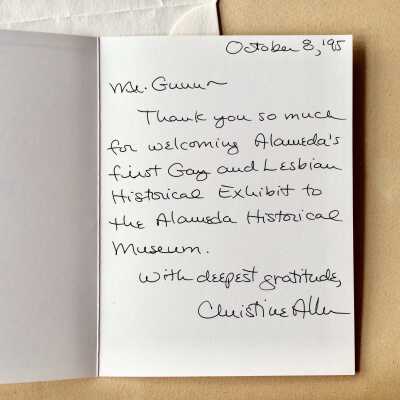 October 8, '95
Mr. Gunn ~
Thank you so much
for welcoming Alameda's
first Gay and Lesbian
Historical Exhibit to
the Alameda Historical
Museum.
With deepest gratitude,
Christine Allen